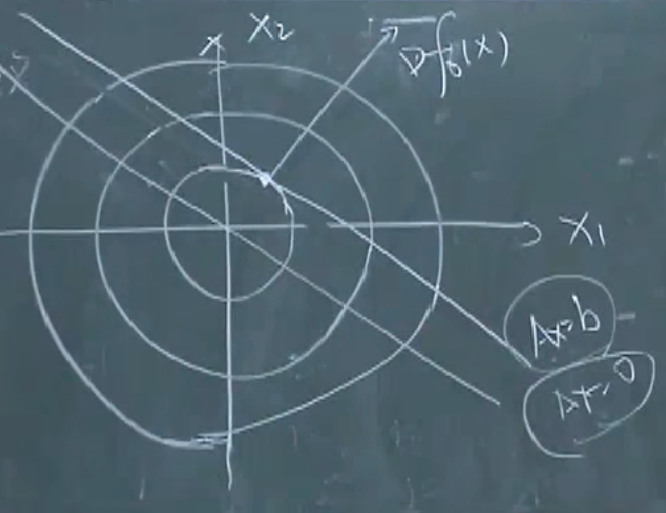 X₂
∇f₀(x)
X₁
Ax=b
Ax=0